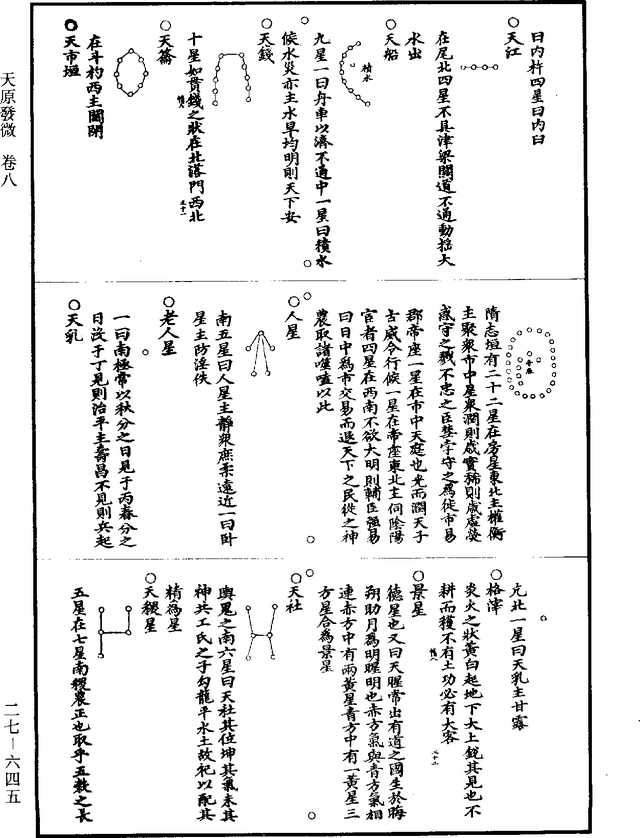 曰內杵四星曰內臼
天江
在尾北四星不具津梁關道不通動搖大
水出
天船
積水
九星一曰舟車以濟不通中一星曰積水
候水災亦主水旱均明則天下安
天錢
十星如貫錢之狀在北落門西北
天籥
在斗杓西主關閉
天市垣
帝座
隋志垣有二十二星在房星東北主權衡
主聚眾市中星眾潤則歲實稀則歲虛熒
惑守之戮不忠之臣彗孛守之為徙市易
郡帝座一星在市中天庭也光而潤天子
吉威令行候一星在帝座東北主伺陰陽
宦者四星在西南不欲大明則輔臣強易
曰日中為市交易而退天下之民從之神
農取諸噬嗑以此
人星
南五星曰人星主靜眾庶柔遠近一曰臥
星主防淫佚
老人星
一曰南極常以秋分之日見于丙春分之
日沒于丁見則治平主壽昌不見則兵起
天乳
亢北一星曰天乳主甘露
格澤
炎火之狀黃白起地下大上銳其見也不
耕而穫不有土功必有大客
景星
德星也又曰天暒常出有道之國生於晦
朔助月為明暒明也赤方氣與青方氣相
連赤方中有兩黃星青方中有一黃星三
方星合為景星
天社
輿鬼之南六星曰天社其位坤其氣未其
神共工氏之子勾龍平水土故祀以配其
精為星
天稷星
五星在七星南稷農正也取乎五穀之長
天原發微 卷八
二七－六四五